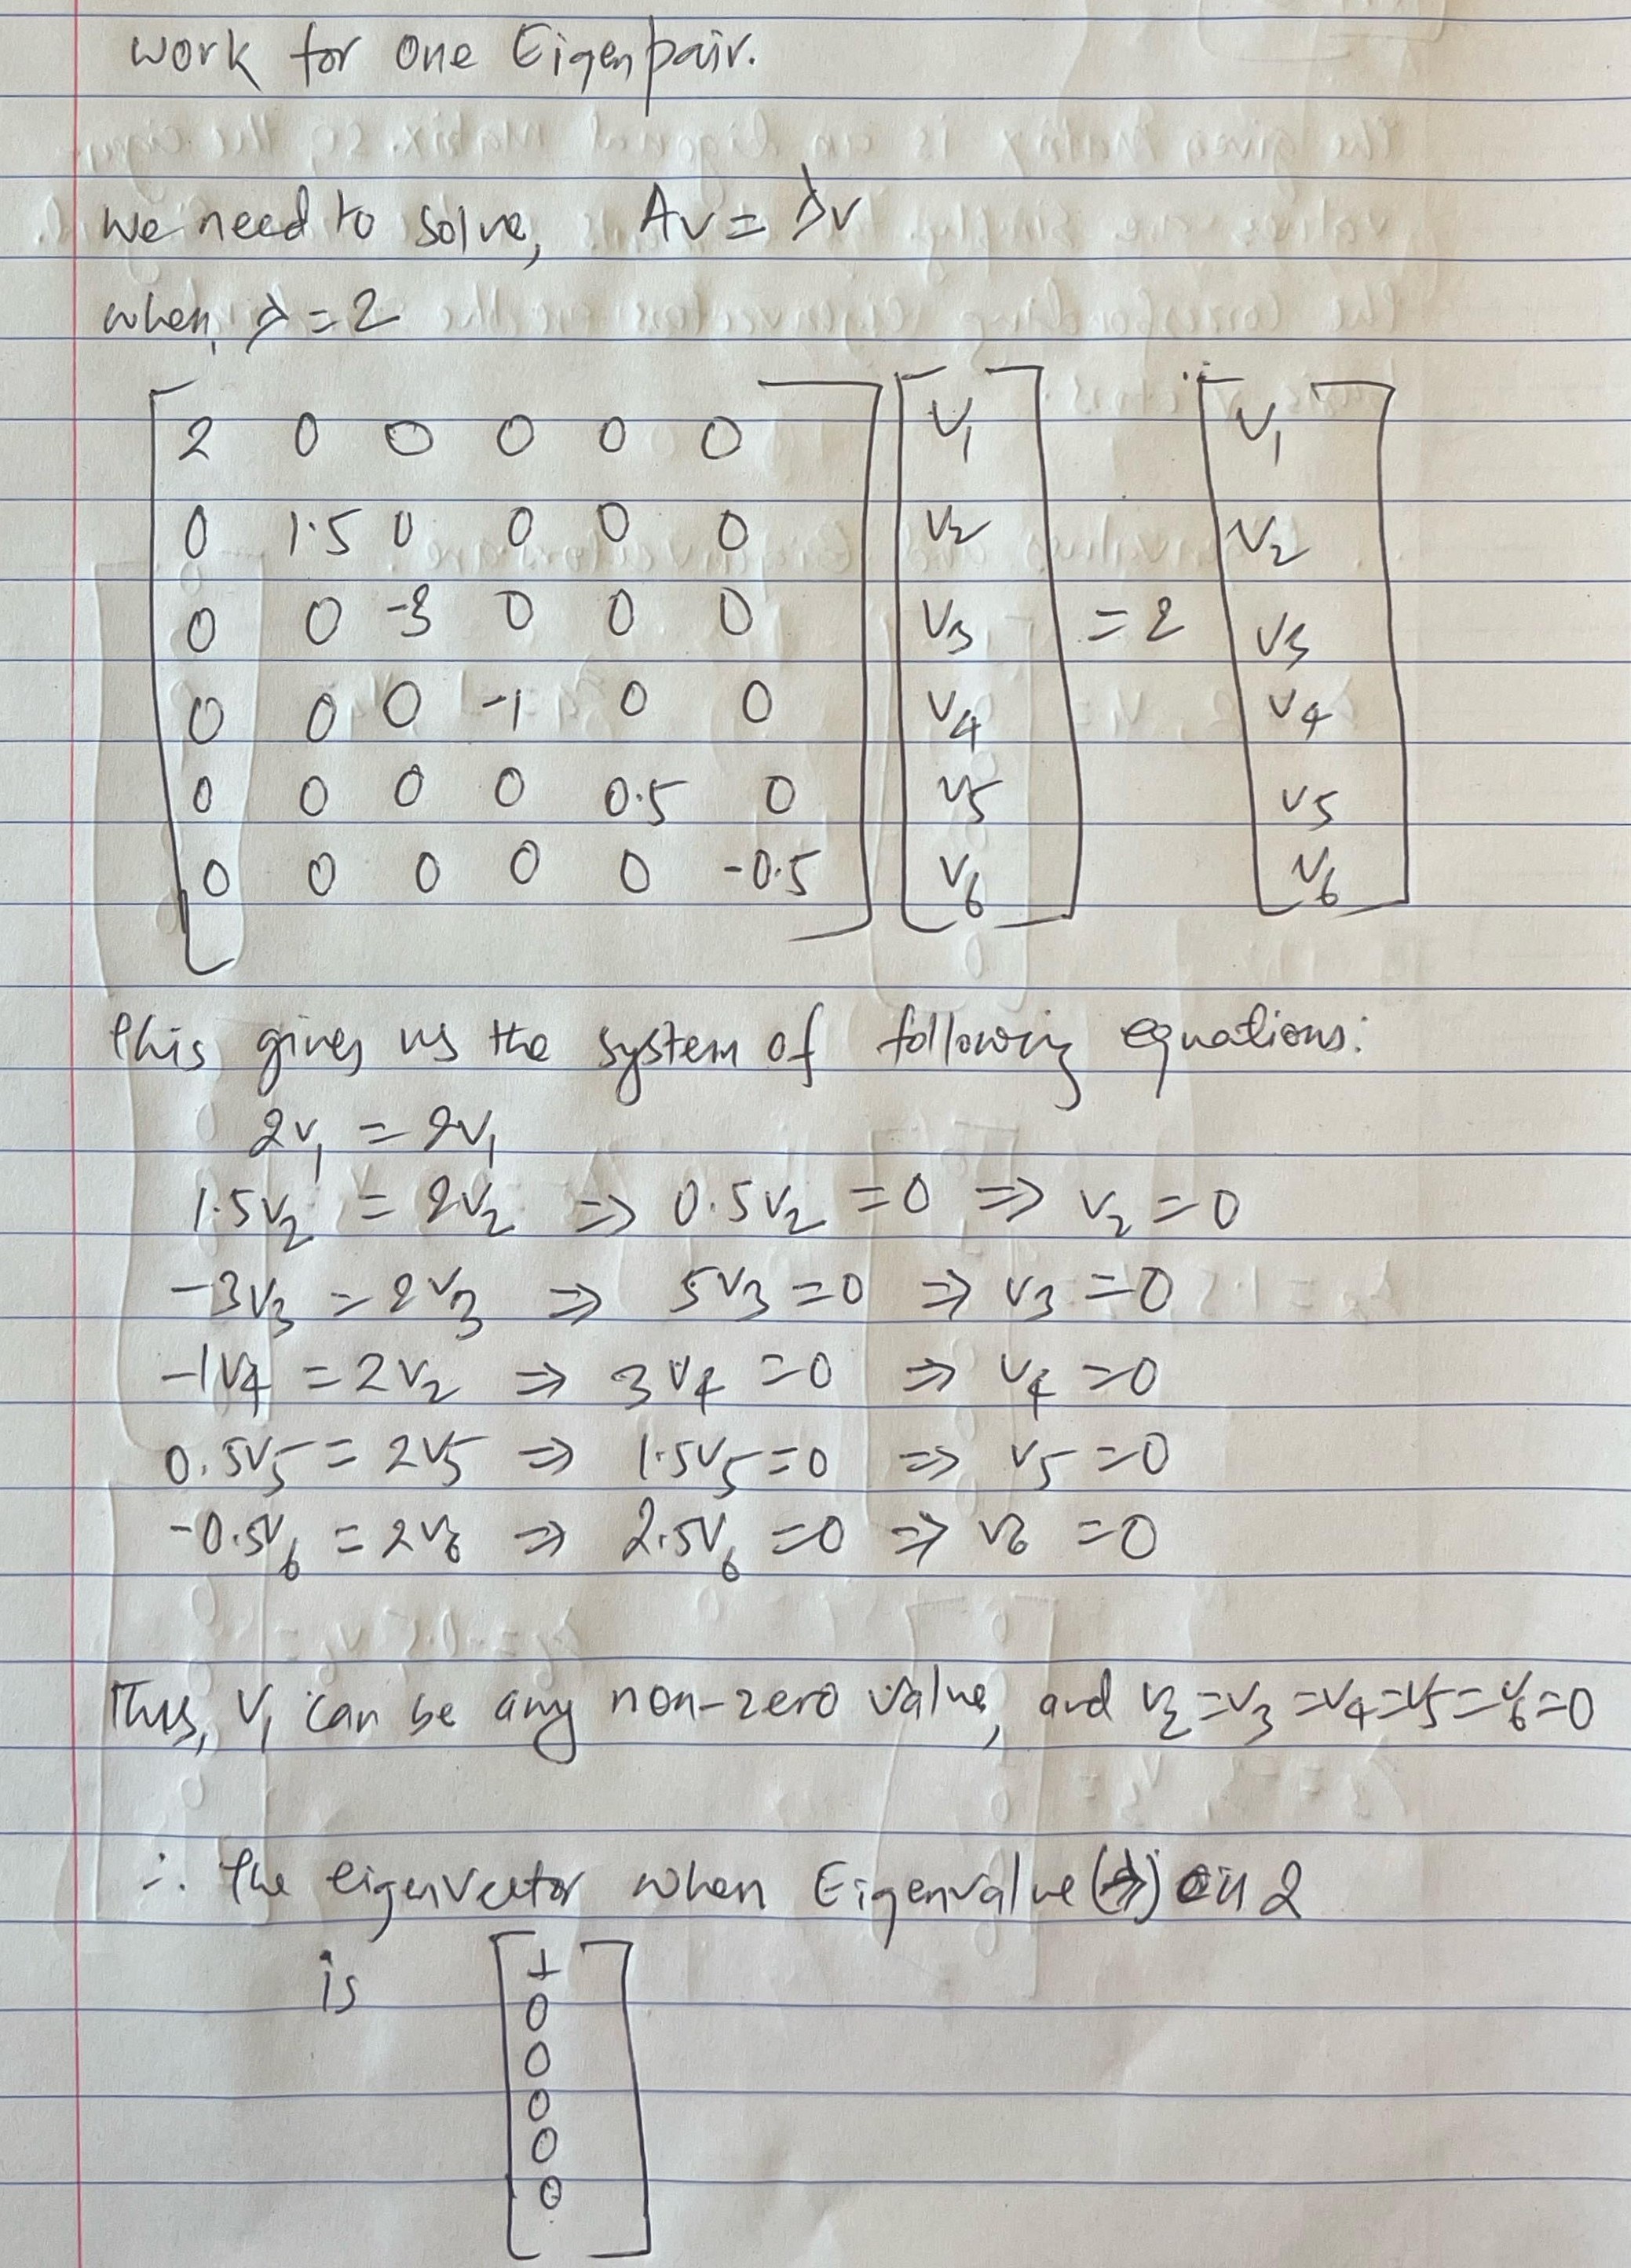 work for one Eigenpair.
we need to solve, Av = λv
when, λ = 2
2 0 0 0 0 0 v₁ v₁
0 1.5 0 0 0 0 v₂ v₂
0 0 -3 0 0 0 v₃ = 2 v₃
0 0 0 -1 0 0 v₄ v₄
0 0 0 0 0.5 0 v₅ v₅
0 0 0 0 0 -0.5 v₆ v₆
This gives us the system of following equations:
2v₁ = 2v₁
1.5v₂ = 2v₂ ⇒ 0.5v₂ = 0 ⇒ v₂ = 0
-3v₃ = 2v₃ ⇒ 5v₃ = 0 ⇒ v₃ = 0
-1v₄ = 2v₂ ⇒ 3v₄ = 0 ⇒ v₄ = 0
0.5v₅ = 2v₅ ⇒ 1.5v₅ = 0 ⇒ v₅ = 0
-0.5v₆ = 2v₆ ⇒ 2.5v₆ = 0 ⇒ v₆ = 0
Thus, v₁ can be any non-zero value, and v₂ = v₃ = v₄ = v₅ = v₆ = 0
∴ The eigenvector when Eigenvalue (λ) is 2
is
1
0
0
0
0
0